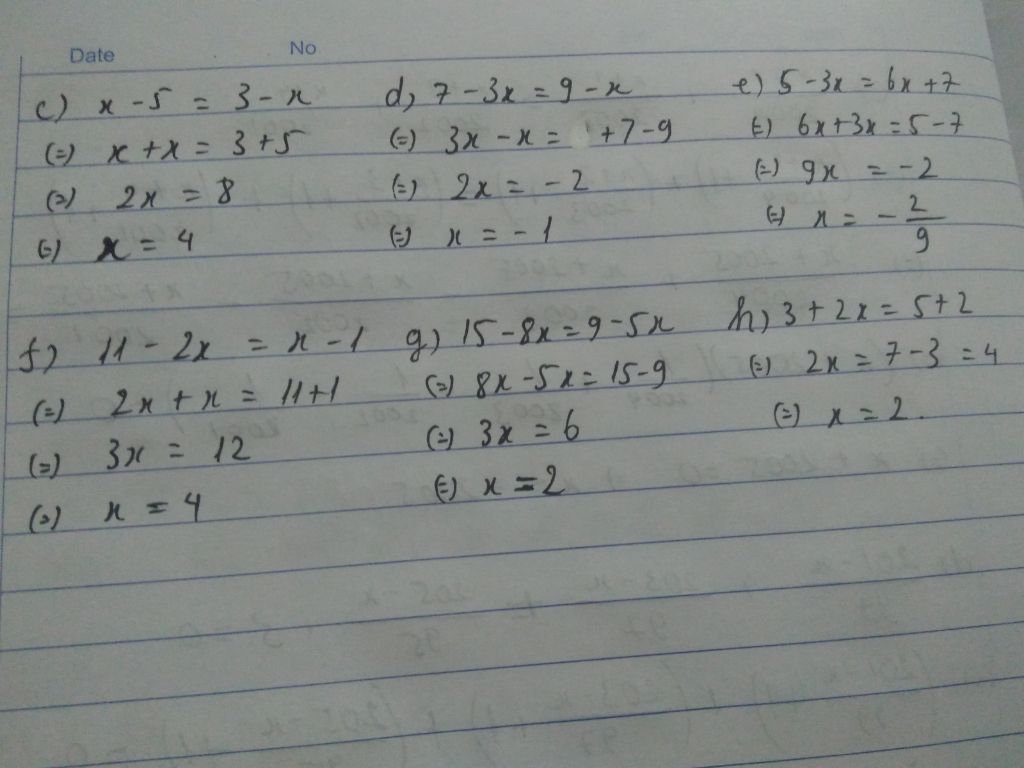 Date No
c) x - 5 = 3 - x
(=) x + x = 3 + 5
(=) 2x = 8
(=) x = 4
d) 7 - 3x = 9 - x
(=) 3x - x = +7 - 9
(=) 2x = - 2
(=) x = - 1
e) 5 - 3x = 6x + 7
(=) 6x + 3x = 5 - 7
(=) 9x = - 2
(=) x = - 2/9
f) 11 - 2x = x - 1
(=) 2x + x = 11 + 1
(=) 3x = 12
(=) x = 4
g) 15 - 8x = 9 - 5x
(=) 8x - 5x = 15 - 9
(=) 3x = 6
(=) x = 2
h) 3 + 2x = 5 + 2
(=) 2x = 7 - 3 = 4
(=) x = 2.